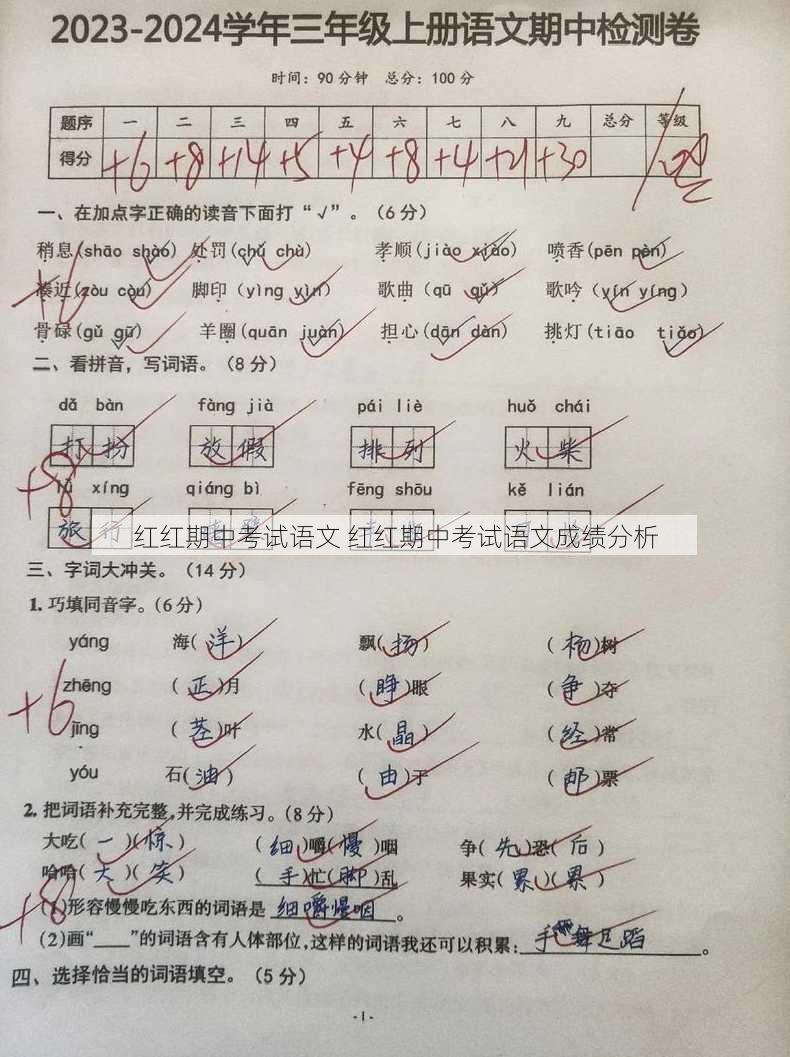 2023-2024学年三年级上册语文期中检测卷
时间：90分钟 总分：100分
题序 一 二 三 四 五 六 七 八 九 总分 等级
得分 +6 +8 +14 +5 +4 +8 +4 +21 +30
一、在加点字正确的读音下面打“√”。（6分）
稍息(shāo shào) 处罚(chǔ chù) 孝顺(jiào xiào) 喷香(pēn pèn)
+6
凑近(zòu còu) 脚印(yìng yìn) 歌曲(qū qǔ) 歌吟(yín yíng)
骨碌(gǔ gū) 羊圈(quān juàn) 担心(dān dàn) 挑灯(tiāo tiǎo)
二、看拼音，写词语。（8分）
dǎ bàn fàng jià pái liè huǒ chái
打扮 放假 排列 火柴
+8
lǚ xíng qiáng bì fēng shōu kě lián
旅行
红红期中考试语文 红红期中考试语文成绩分析
三、字词大冲关。（14分）
1. 巧填同音字。（6分）
yáng 海(洋) 飘(扬) (杨)树
zhēng (正)月 (睁)眼 (争)夺
+6
jīng (茎)叶 水(晶) (经)常
yóu 石(油) (由)于 (邮)票
2. 把词语补充完整，并完成练习。（8分）
大吃(一)(惊) (细)嚼(慢)咽 争(先)恐(后)
哈哈(大)(笑) (手)忙(脚)乱 果实(累)(累)
+8
(1)形容慢慢吃东西的词语是 细嚼慢咽。
(2)画“____”的词语含有人体部位，这样的词语我还可以积累：手舞足蹈。
四、选择恰当的词语填空。（5分）
- 1 -